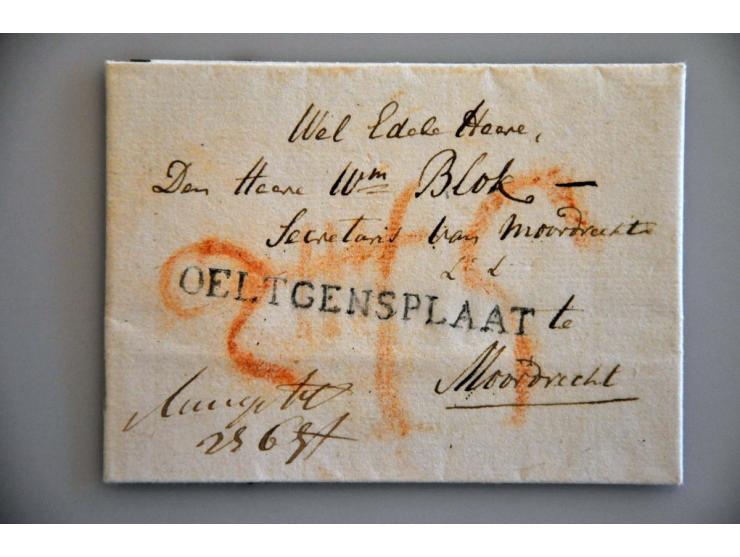 Wel Edele Heere,
Den Heere Wm Blok —
Secretaris van Moordrecht
OELTGENSPLAAT te
Moordrecht